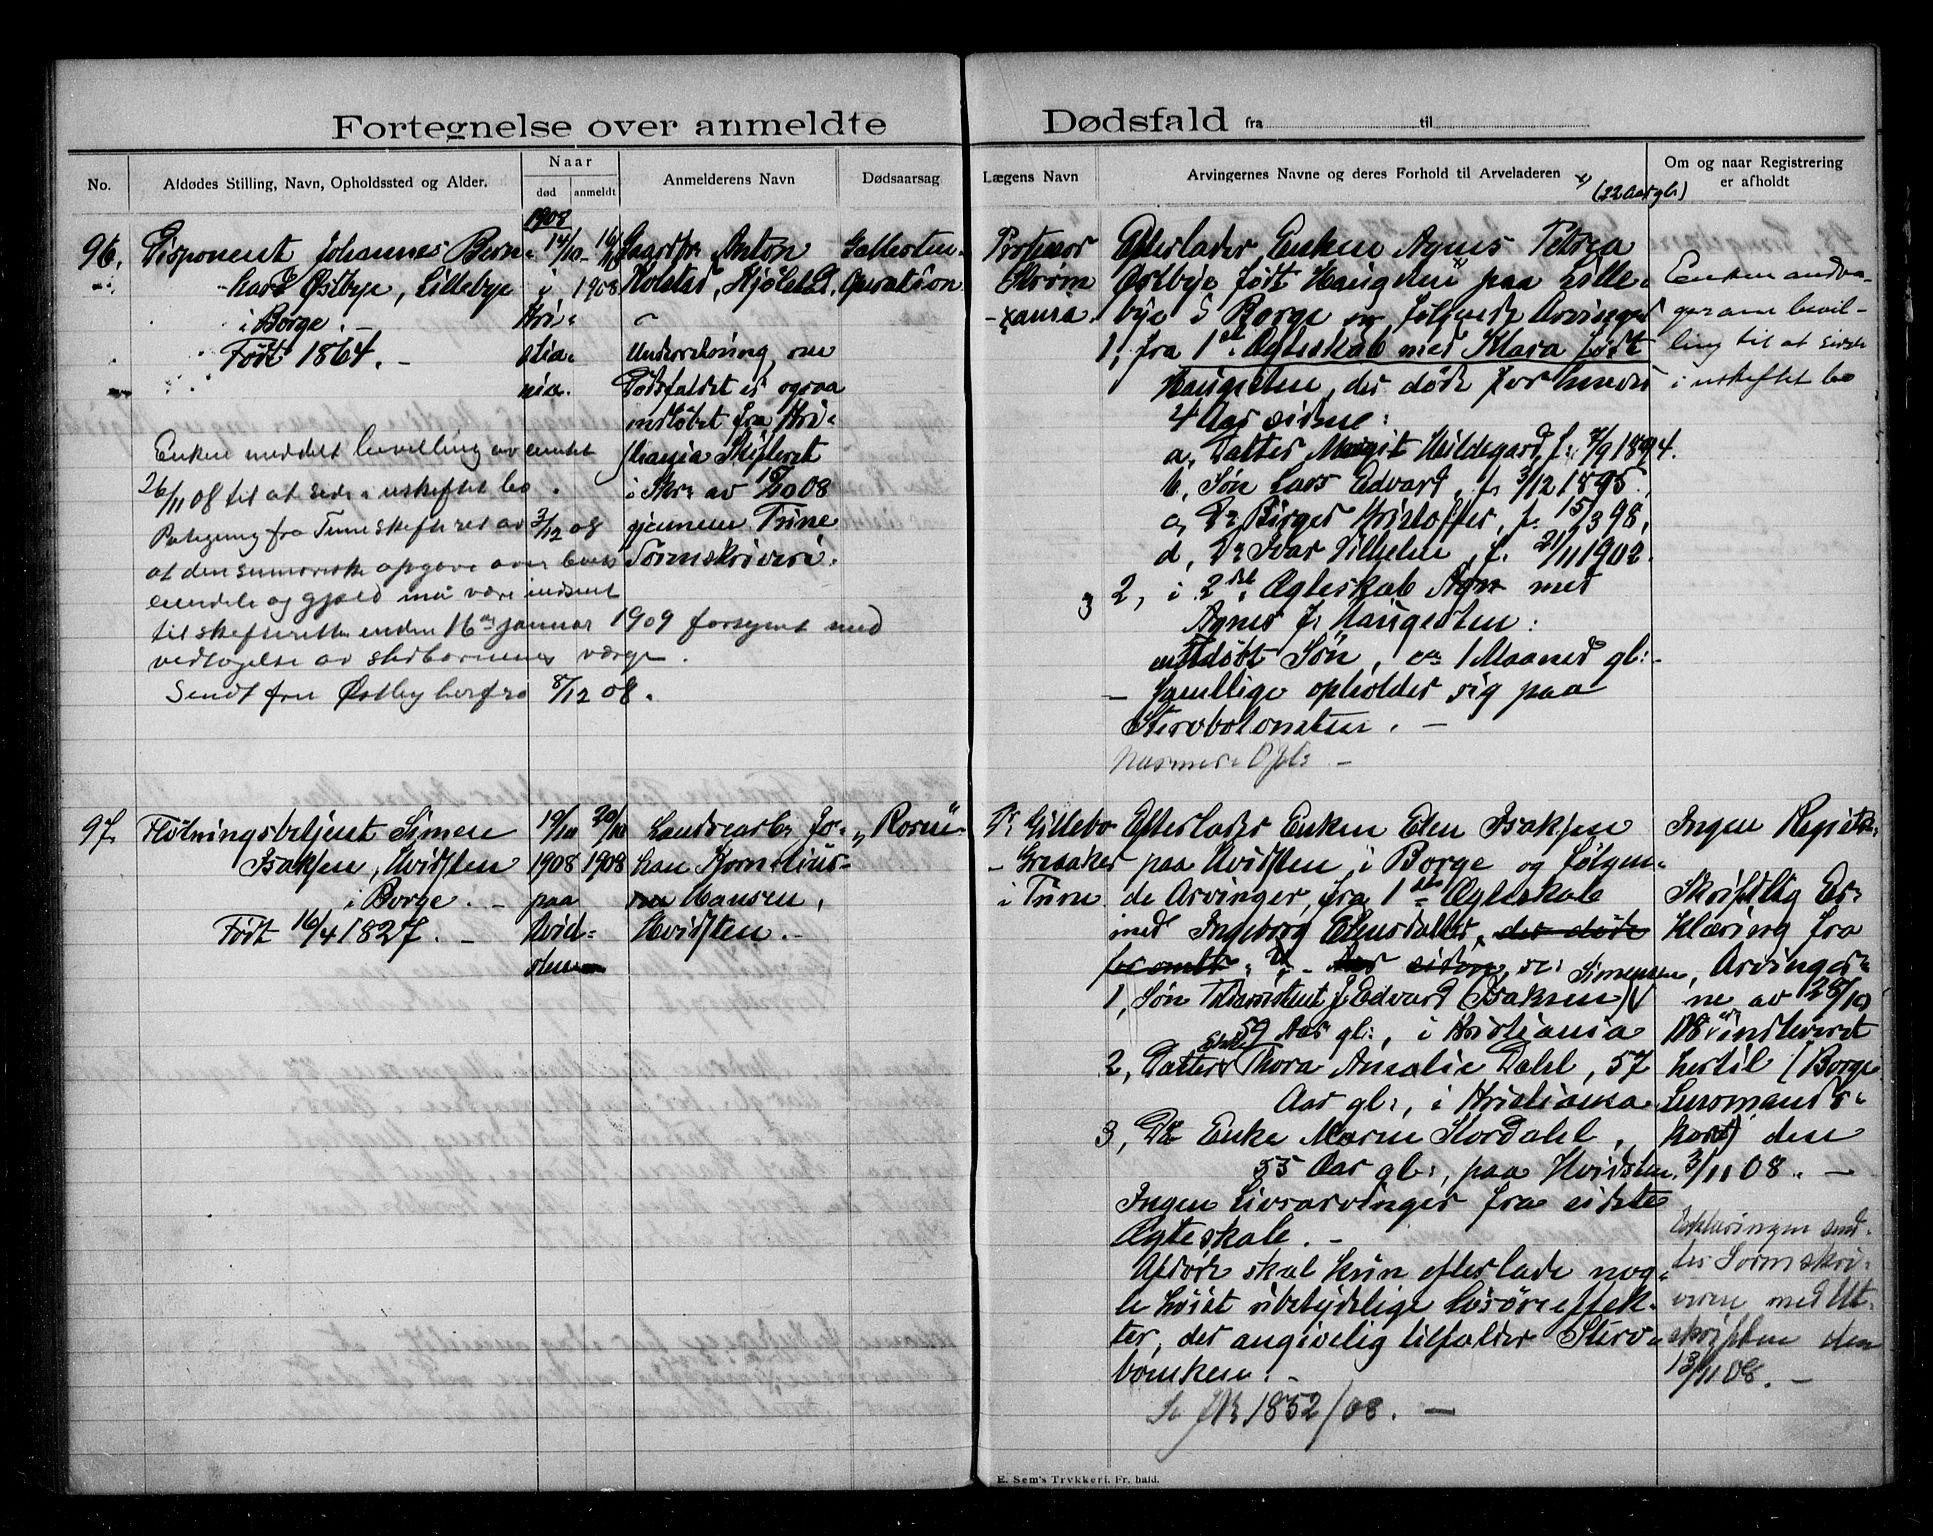 Fortegnelse over anmeldte Dødsfald fra til
No.
Afdødes Stilling, Navn, Opholdssted og Alder.
Naar
død anmeldt
Anmelderens Navn
Dødsaarsag
Lægens Navn
Arvingernes Navne og deres Forhold til Arveladeren
x) (22 Aar gl.)
Om og naar Registrering
er afholdt
1908
96.
Disponent Johannes Bern-
hard Østbye, Lillebye
i Borge. -
Født 1864. -
14/10
i
Kri-
stia-
nia.
1908
Gaardbr Anton
Holstad, Skjeberg
Underretning om
Dødsfaldet er ogsaa
indløbet fra Kri-
stiania Skifteret
i Skr. av 15/10 08
gjennem Tune
Sorenskriveri.
Gallesten-
Operation
Professor
Strøm
Kania.
Efterlader Enken Agnes Petrea
Østbye født Haugsten x) paa Lille-
bye i Borge og følgende Arvinger
1, fra 1ste Ægteskab med Klara født
Haugsten, der døde for henved
4 Aar siden:
a, Datter Margit Hildegard, f. 7/9 1894.
b, Søn Lars Edvard, f. 3/12 1895.
c, Do Birger Kristoffer, f. 15/3 98,
d, Do Ivar Vilhelm, f. 21/11 1902.
2, i 2det Ægteskab Agn med
Agnes f. Haugesten:
en udøbt Søn, ca 1 Maaned gl:
- Samtlige opholder sig paa
Stervbolometeen. -
Enken andra-
ger om bevil-
ling til at sidde
i uskiftet bo
Enken meddelt bevilling av amtet
26/11 08 til at sidde i uskiftet bo.
Paategning fra Tune skifteret av 3/12 08
at den summariske opgave over boets
eiendele og gjæld må være indsent
til skifteretten inden 16de januar 1909 forsynt med
vedtagelse av stedbarnenes værge.
Sendt fru Østby herfra 8/12 08.
97.
Fløtningsbetjent Simen
Isaksen, Hvidsten
i Borge. -
Født 16/4 1827. -
19/10
1908
paa
Hvid-
sten
20/10
1908
Landarb. Jo-
han Kornelius-
Hansen,
Hvidsten. -
Dr Gillebo
- Greaaker
i Tune
Efterlader Enken Elen Isaksen
paa Hvidsten, i Borge og følgen-
de Arvinger, fra 1ste Ægteskab
med Ingeborg Elensdatter, der døde
for omtr. Aar siden, se:
1, Søn J. Edvard (Isaksen) Simensen,
59 Aar gl:, i Kristiania
2, Datter Enke Thora Amalie Dahl, 57
Aar gl:, i Kristiania
3, Do Enke Maren Stordahl,
55 Aar gl:, paa Hvidsten.
Ingen Livsarvinger fra sidste
Ægteskab. -
Afdøde skal kun efterlade nog-
le høist ubetydelige Løsøreeffek-
ter, der angivelig tilfalder Sterv-
boenken. -
Se JN 1852/08. -
Ingen Registr.
Skriftlig Er-
klæring fra
Arvinger-
ne av 28/10
08 indleveret
hertil (Borge
Lensmands-
kont) den
3/11 08. -
Erklæringen send-
tes Sorenskri-
veren med Ut-
skriften den
13/11 08. -
E. Sem's Trykkeri, Fr. hald.